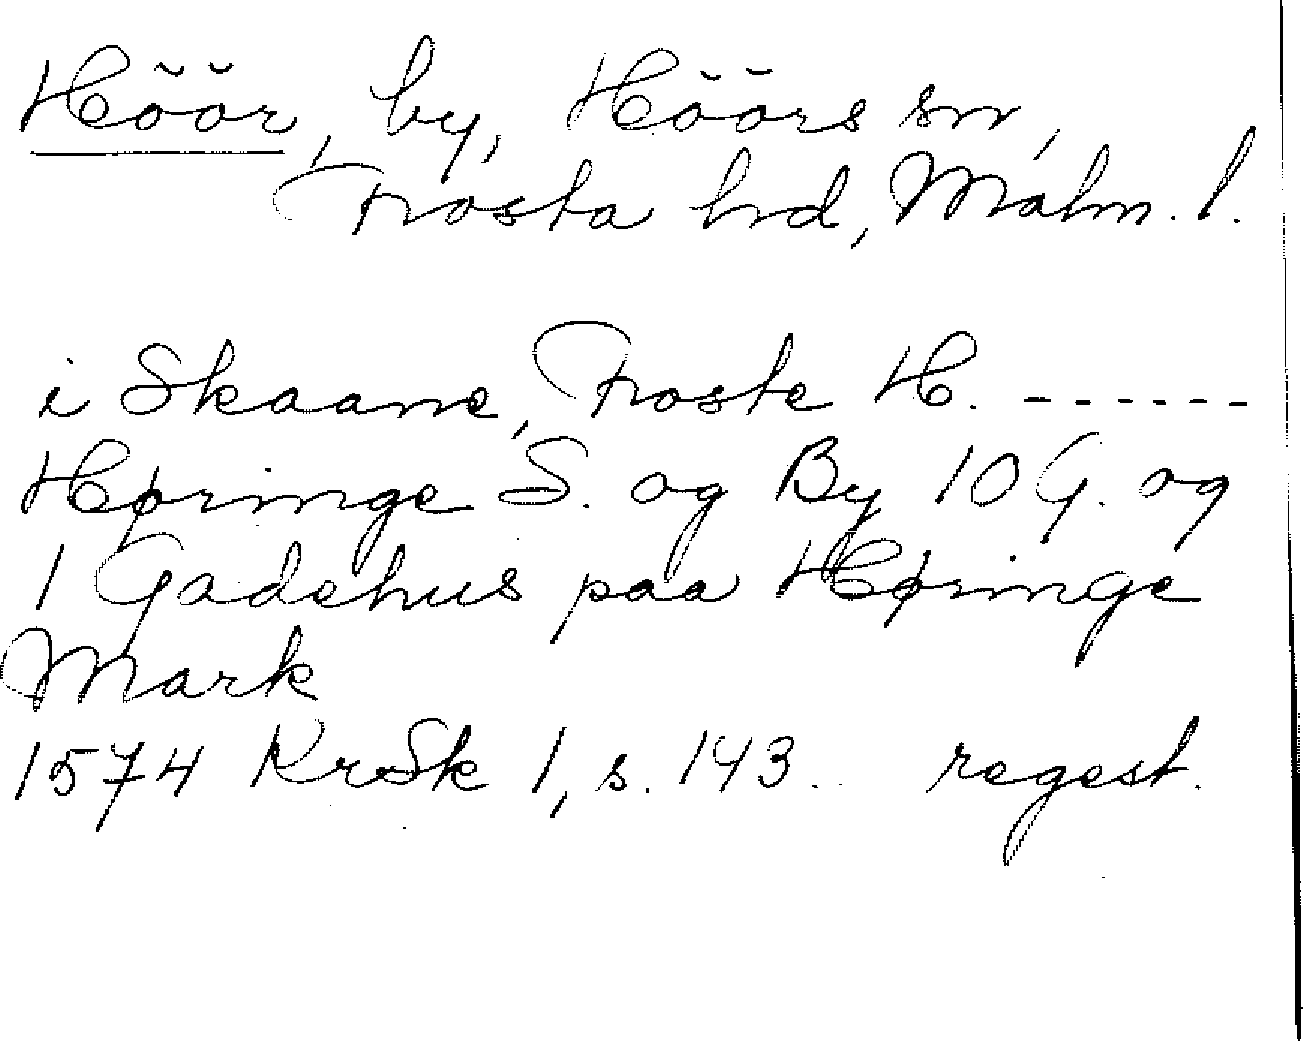 Höör, by, Höörs sn,
Frosta hrd, Malm. l.
i Skaane, Froste H. ------
Høringe S. og By 10 G. og
1 Gadehus paa Høringe
Mark
1574 KrSk 1, s. 143. regest.